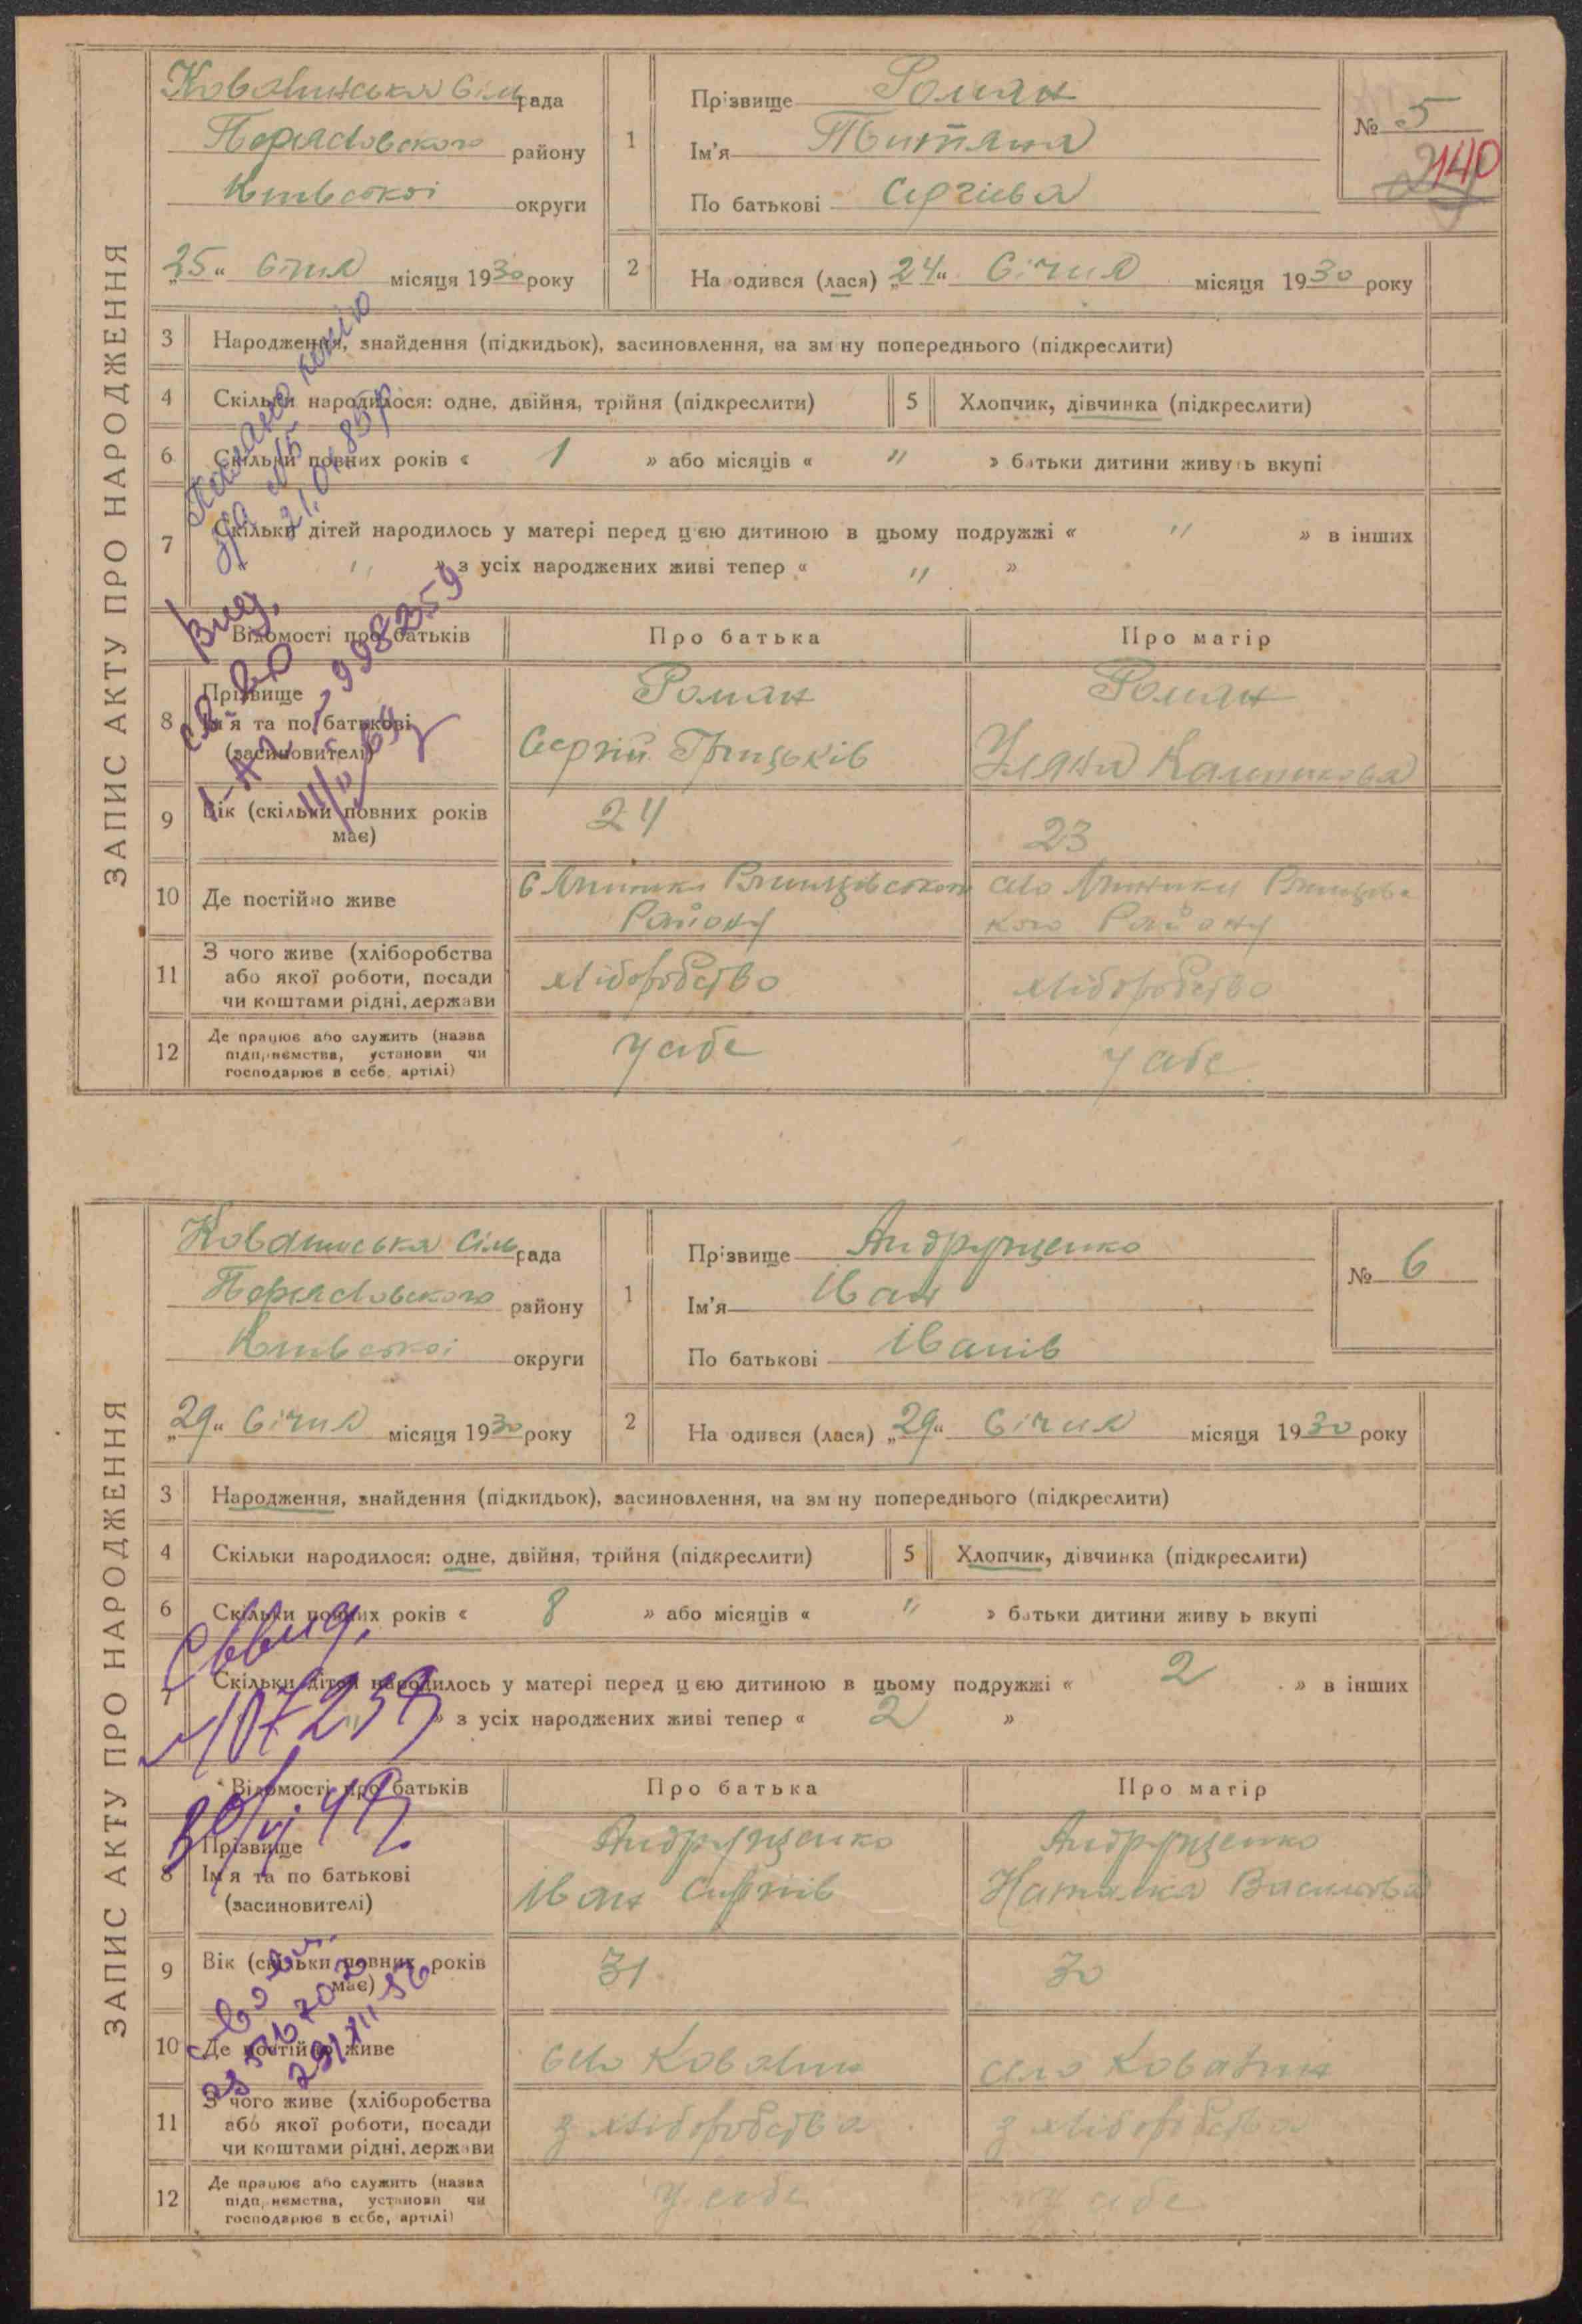 ЗАПИС АКТУ ПРО НАРОДЖЕННЯ
Ковалинська Сільрада
Переяславського району
Київської округи
„25“ Січня місяця 1930 року
1
Прізвище Роман
Ім'я Титяна
По батькові Сергієва
№ 5
140
2
На одився (лася) „24“ Січня місяця 1930 року
3 Народження, знайдення (підкидьок), засиновлення, на зм ну попереднього (підкреслити)
4 Скільки народилося: одне, двійня, трійня (підкреслити)
5 Хлопчик, дівчинка (підкреслити)
6 Скільки повних років « 1 » або місяців « " » батьки дитини живу ь вкупі
7 Скільки дітей народилось у матері перед цією дитиною в цьому подружжі « " » в інших
" » з усіх народжених живі тепер « " »
Відомості про батьків
Про батька
Про матір
8 Прізвище
Ім'я та по батькові
(засновителі)
Роман
Сергій Грицьків
Роман
Уляна
9 Вік (скільки повних років має)
24
23
10 Де постійно живе
Району
село
кого Району
11 З чого живе (хліборобства
або якої роботи, посади
чи коштами рідні, держави
хліборобство
хліборобство
12 Де працює або служить (назва
підприємства, установи чи
господарює в себе, артілі)
у себе
у себе
Вид.
св-во
ЗАПИС АКТУ ПРО НАРОДЖЕННЯ
Ковалинська Сільрада
Переяславського району
Київської округи
„29“ Січня місяця 1930 року
1
Прізвище Андрущенко
Ім'я Іван
По батькові Іванів
№ 6
2
На одився (лася) „29“ Січня місяця 1930 року
3 Народження, знайдення (підкидьок), засиновлення, на зм ну попереднього (підкреслити)
4 Скільки народилося: одне, двійня, трійня (підкреслити)
5 Хлопчик, дівчинка (підкреслити)
6 Скільки повних років « 8 » або місяців « " » батьки дитини живу ь вкупі
7 Скільки дітей народилось у матері перед цією дитиною в цьому подружжі « 2 » в інших
" » з усіх народжених живі тепер « 2 »
Відомості про батьків
Про батька
Про матір
8 Прізвище
Ім'я та по батькові
(засиновителі)
Андрущенко
Іван
Андрущенко
Наталка Василева
9 Вік (скільки повних років має)
31
30
10 Де постійно живе
село Ковалин
село Ковалин
11 З чого живе (хліборобства
або якої роботи, посади
чи коштами рідні, держави
з хліборобства
з хліборобства
12 Де працює або служить (назва
підприємства, установи чи
господарює в себе, артілі)
у себе
у себе